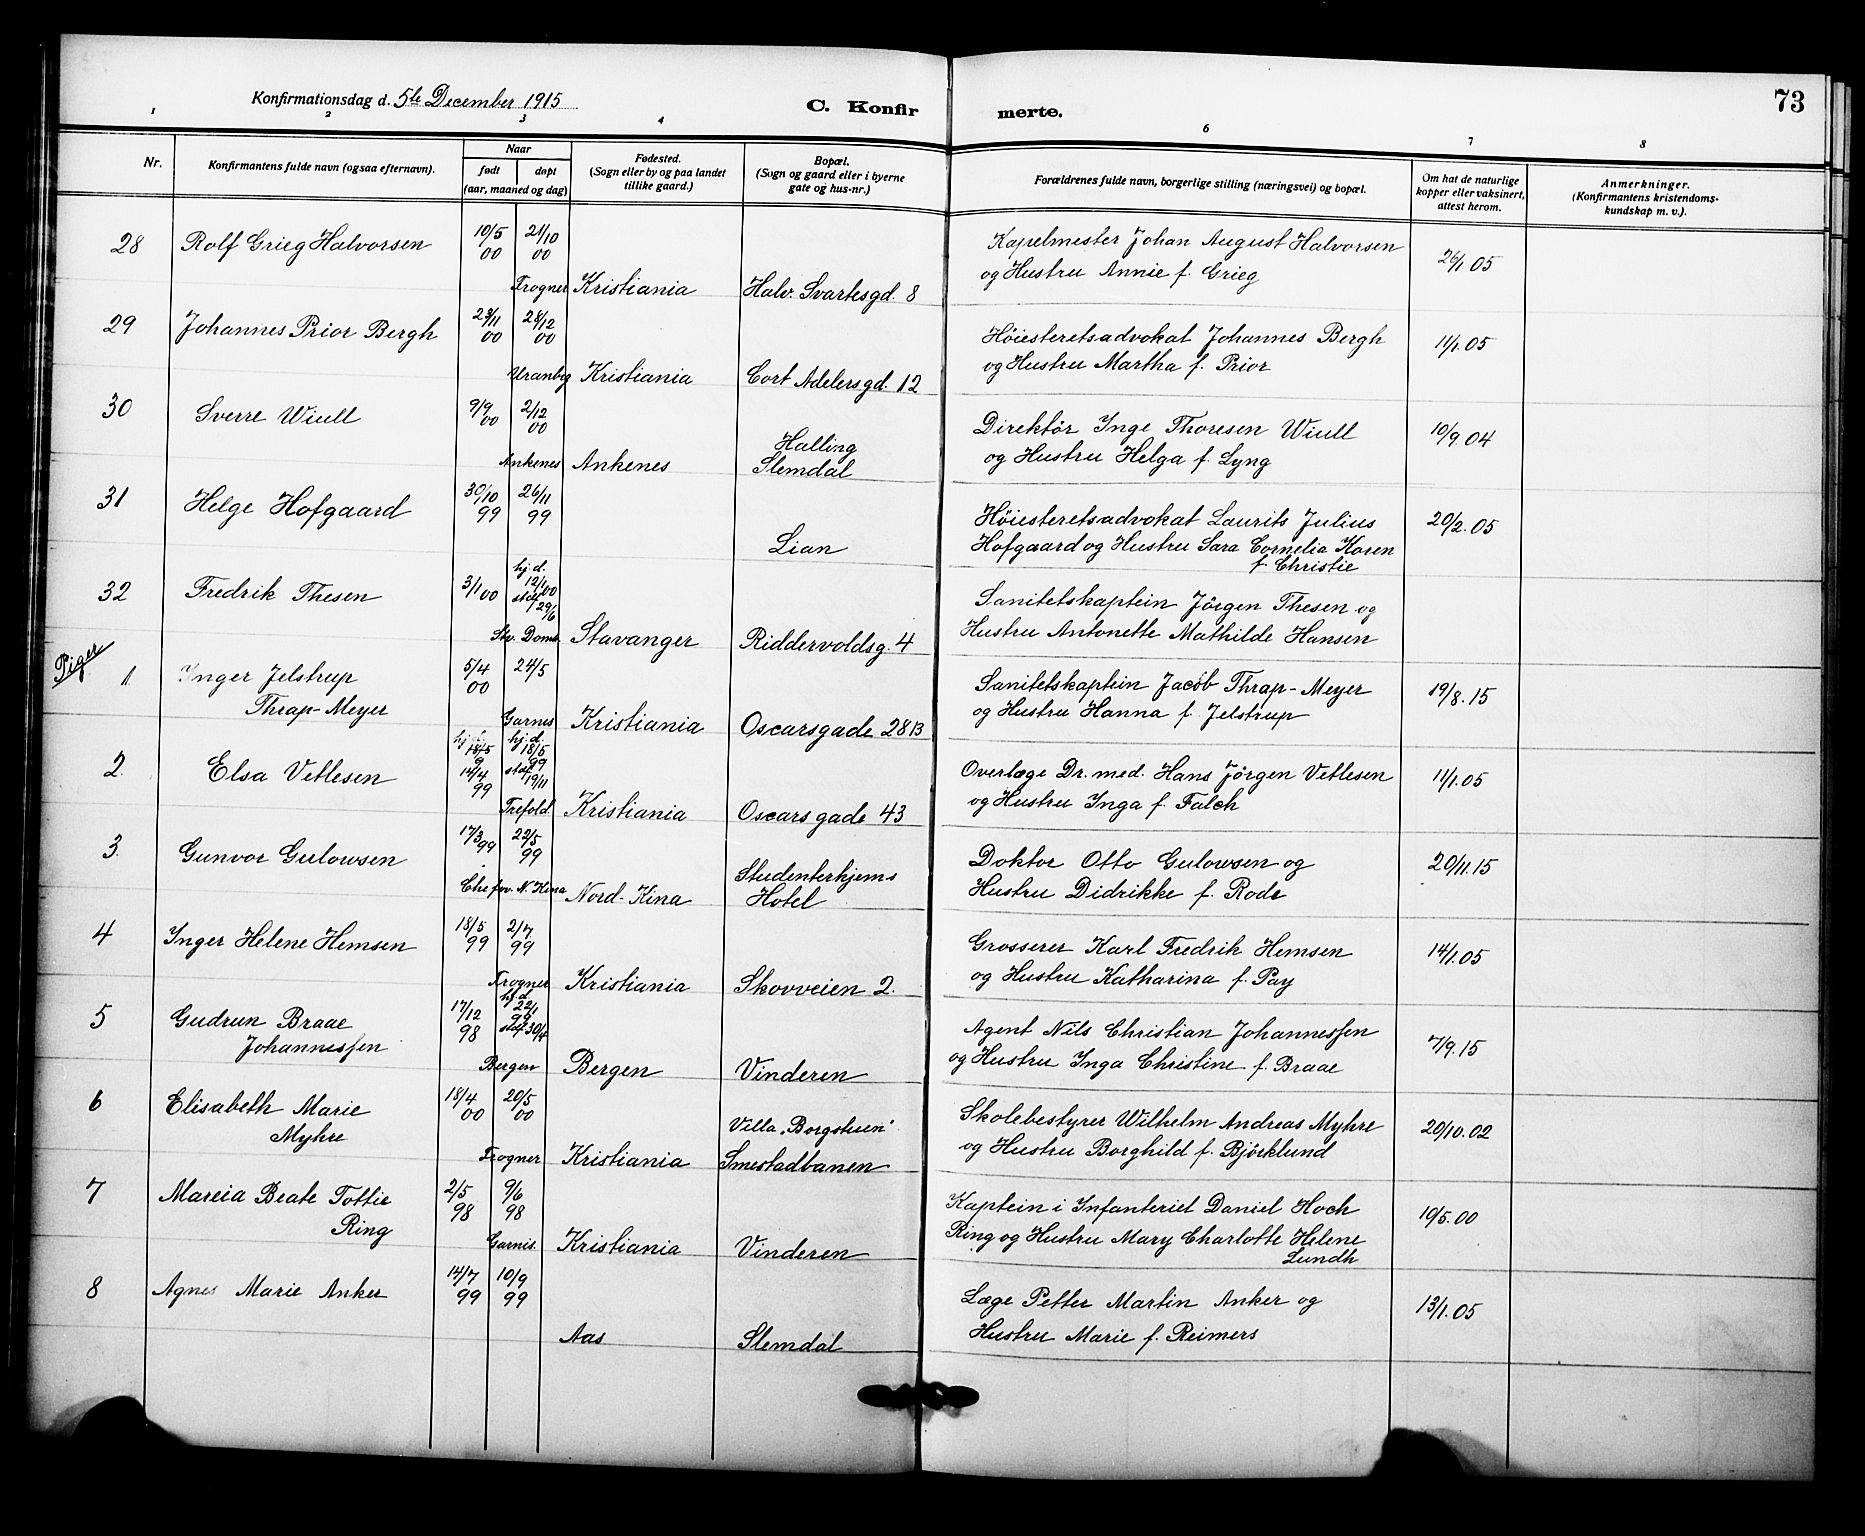 73
Konfirmationsdag d. 5te December 1915
C. Konfirmerte.
1 2 3 4 6 7 8
Nr.
Konfirmantens fulde navn (ogsaa efternavn).
Naar
født døpt
(aar, maaned og dag)
Fødested.
(Sogn eller by og paa landet
tillike gaard.)
Bopæl.
(Sogn og gaard eller i byerne
gate og hus-nr.)
Forældrenes fulde navn, borgerlige stilling (næringsvei) og bopæl.
Om hat de naturlige
kopper eller vaksinert,
attest herom.
Anmerkninger.
(Konfirmantens kristendoms-
kundskap m. v.).
28 Rolf Grieg Halvorsen 10/5 00 21/10 00
Frogner Kristiania Halv. Svartesgd. 8
Kapelmester Johan August Halvorsen
og Hustru Annie f. Grieg
26/1 05
29 Johannes Prior Bergh 23/11 00 28/12 00
Uranbg Kristiania Cort Adelersgd. 12
Høiesteretsadvokat Johannes Bergh
og Hustru Martha f. Prior
11/1. 05
30 Sverre Wiull 9/9 00 2/12 00
Ankenes Ankenes Halling
Slemdal
Direktör Inge Thoresen Wiull
og Hustru Helga f. Lyng
10/9. 04
31 Helge Hofgaard 30/10 99 26/11 99
Lian
Höiesteretsadvokat Laurits Julius
Hofgaard og Hustru Sara Cornelia Koren
f. Christie
20/2. 05
32 Fredrik Thesen 3/1 00 hj. d. 12/1 00 stdf 29/6
Stv. Domk. Stavanger Riddervoldsg. 4
Sanitetskaptein Jörgen Thesen og
Hustru Antonette Mathilde Hansen
Piger
1. Inger Jelstrup
Thrap-Meyer 5/4 00 24/5
Garnes Kristiania Oscarsgade 28B
Sanitetskaptein Jacob Thrap-Meyer
og Hustru Hanna f. Jelstrup
19/8. 15
2. Elsa Vetlesen 14/4 99 hj. d. 18/5 99 stdf 19/11
Trefold. Kristiania Oscars gade 43
Overlæge Dr. med. Hans Jörgen Vetlesen
og Hustru Inga f. Falch
11/1. 05
3. Gunvor Gulowsen 17/3 99 22/5 99
N. Kina Nord-Kina Studenterhjems
Hotel
Doktor Otto Gulowsen og
Hustru Didrikke f. Rode
20/11. 15
4 Inger Helene Hemsen 18/5 99 2/7 99
Frogner Kristiania Skovveien 2.
Grosserer Karl Fredrik Hemsen
og Hustru Katharina f. Pay
14/1. 05
5 Gudrun Braae
Johannessen 17/12 98 hj. d. 22/1 99 stdf 30/4
Bergen Bergen Vinderen
Agent Nils Christian Johannessen
og Hustru Inga Christine f. Braae
7/9. 15
6 Elisabeth Marie
Myhre 18/4 00 20/5 00
Frogner Kristiania Villa „Borgstuen"
Smestadbanen
Skolebestyrer Wilhelm Andreas Myhre
og Hustru Borghild f. Björklund
20/10. 02
7 Marcia Beate Tottie
Ring 2/5 98 9/6 98
Garnis. Kristiania Vinderen
Kaptein i Infanteriet Daniel Hoch
Ring og Hustru Mary Charlotte Helene
Lundh
19/5. 00
8 Agnes Marie Anker 14/7 99 10/9 99
Aas Slemdal
Læge Petter Martin Anker og
Hustru Marie f. Reimers
13/1. 05